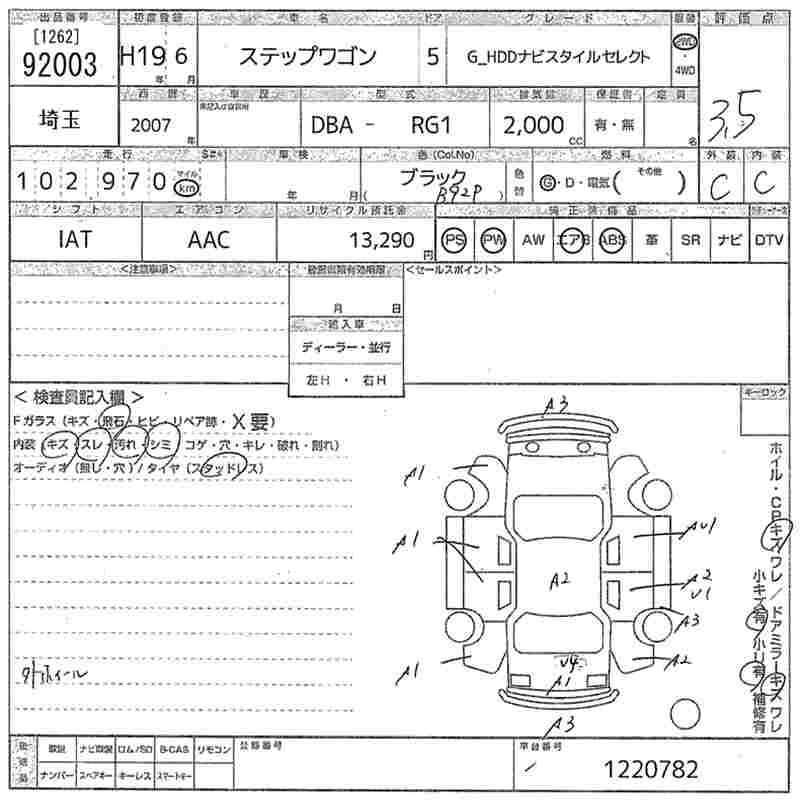 出品番号 初度登録 車名 ドア グレード 駆動 評価点
[1262]
92003 H19 6 ステップワゴン 5 G_HDDナビスタイルセレクト 2WD ・ 4WD
年 月
埼玉 西暦 車歴 型式 排気量 保証書 定員 3.5
2007 年 DBA - RG1 2,000 cc 有・無 名
走行 車検 色(Col.No) 燃料 外装 内装
102970 マイル km 年 月 ( ブラック B92P ) 色替 G・D・電気( その他 ) C C
シフト エアコン リサイクル預託金 純正装備品
IAT AAC 13,290 円 PS PW AW エアB ABS 革 SR ナビ DTV
<注意事項> <セールスポイント>
月 日
輸入車
ディーラー・並行
左H ・ 右H
< 検査員記入欄 >
キーロック
Fガラス (キズ・飛石・ヒビ・リペア跡・X要)
内装 (キズ・スレ・汚れ・シミ コゲ・穴・キレ・破れ・割れ)
オーディオ (無し・穴) / タイヤ (スタッドレス)
A3
A1
A1 AU1
A2 A2
U1
A3
A1 U4 A2
A1
A3
ホイル・CPキズワレ/ドアミラーキズワレ
小キズ有/小U有/補修有
取説 ナビ取説 ロム/SD B-CAS リモコン 公認番号 車台番号
ナンバー スペアキー キーレス スマートキー 1220782